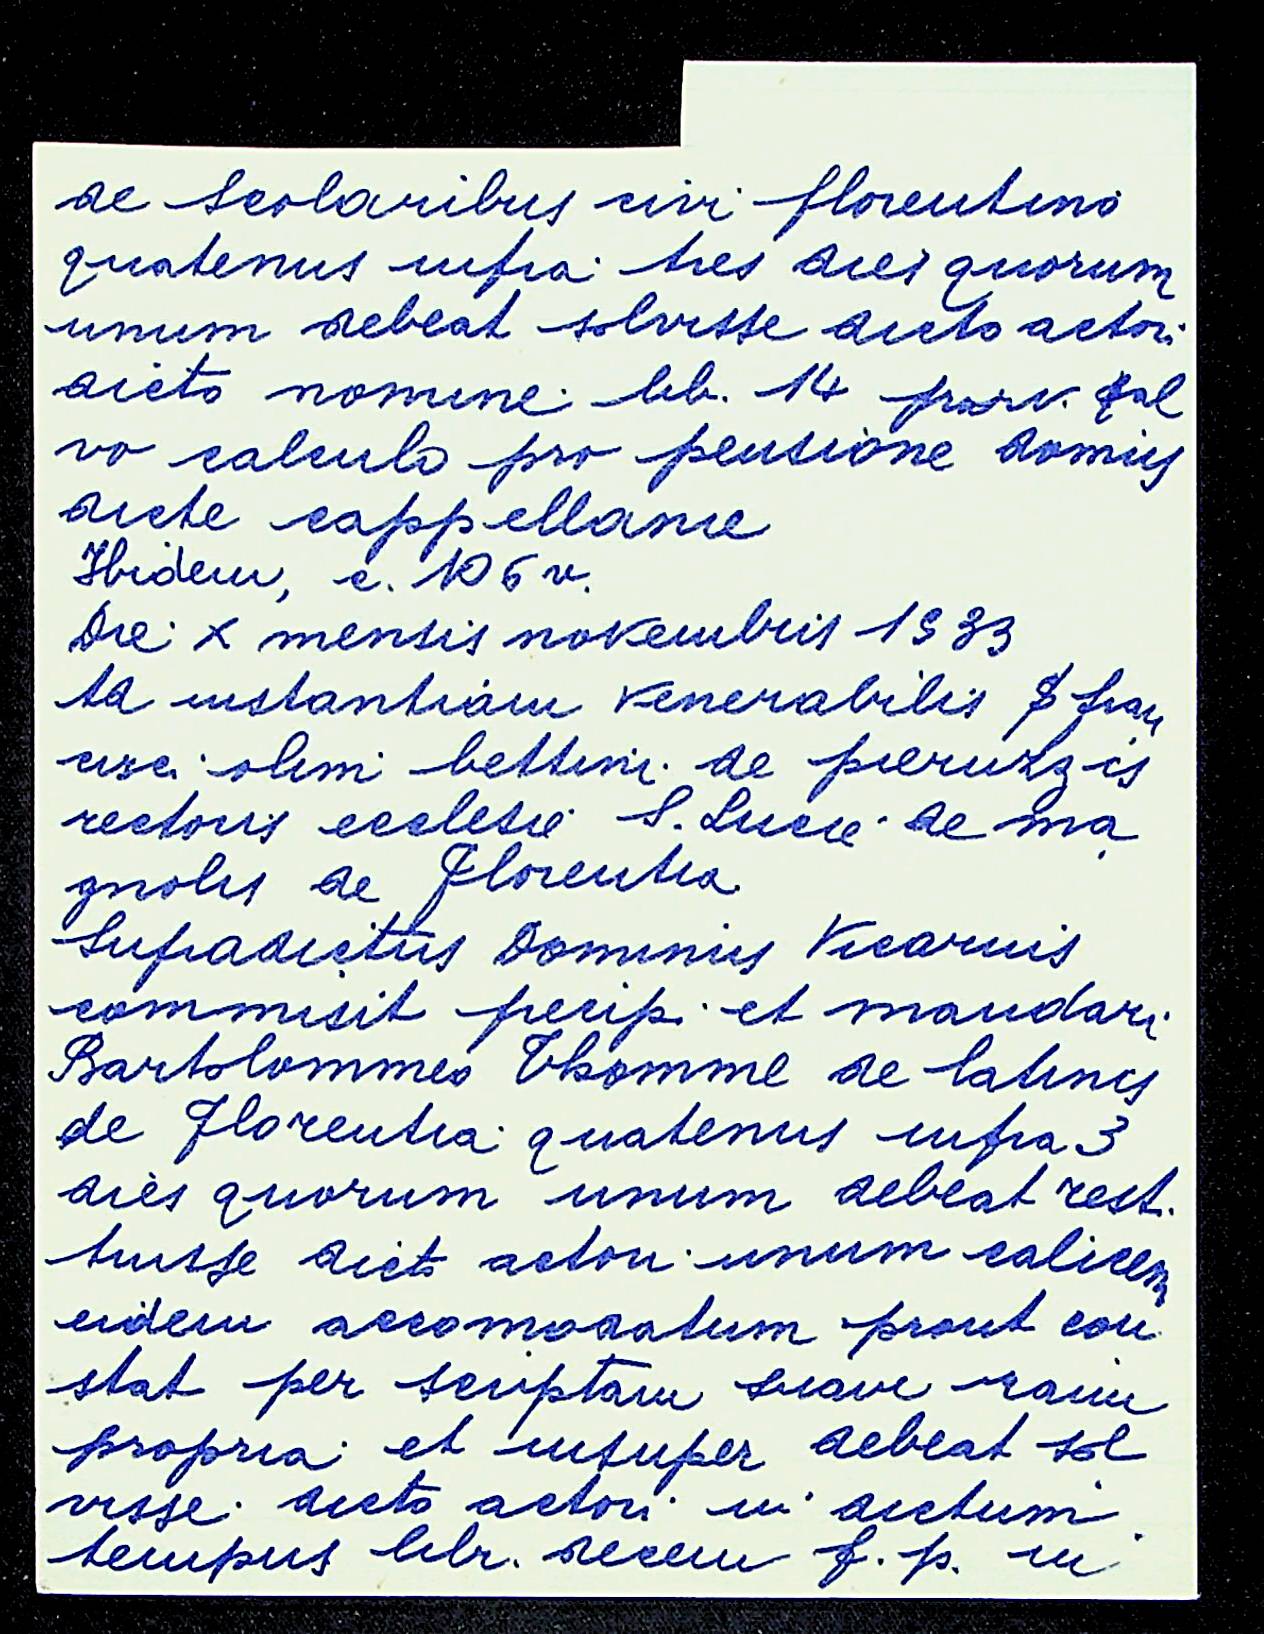 de Scolaribus civi florentino
quatenus infra tres dies quorum
unum debeat solvisse dicto actori
dicto nomine lib. 14 parv. sal
vo calculo pro pensione domus
dicte cappellanie
Ibidem, c. 106 v.
Die X mensis novembris 1933
ad instantiam venerabilis fran
cisci olim bettini de peruzzis
rectoris ecclesie S. Lucie de ma
gnolis de Florentia
Supradictus Dominus Vicarius
commisit precip. et mandari
Bartolommeo Thomme de latinis
de Florentia quatenus infra 3
dies quorum unum debeat rest.
tuisse dicto actori unum calicem
eidem accomodatum prout con
stat per scriptam manu
propria et insuper debeat sol
visse dicto actori in dictum
tempus libr. decem f. p. in